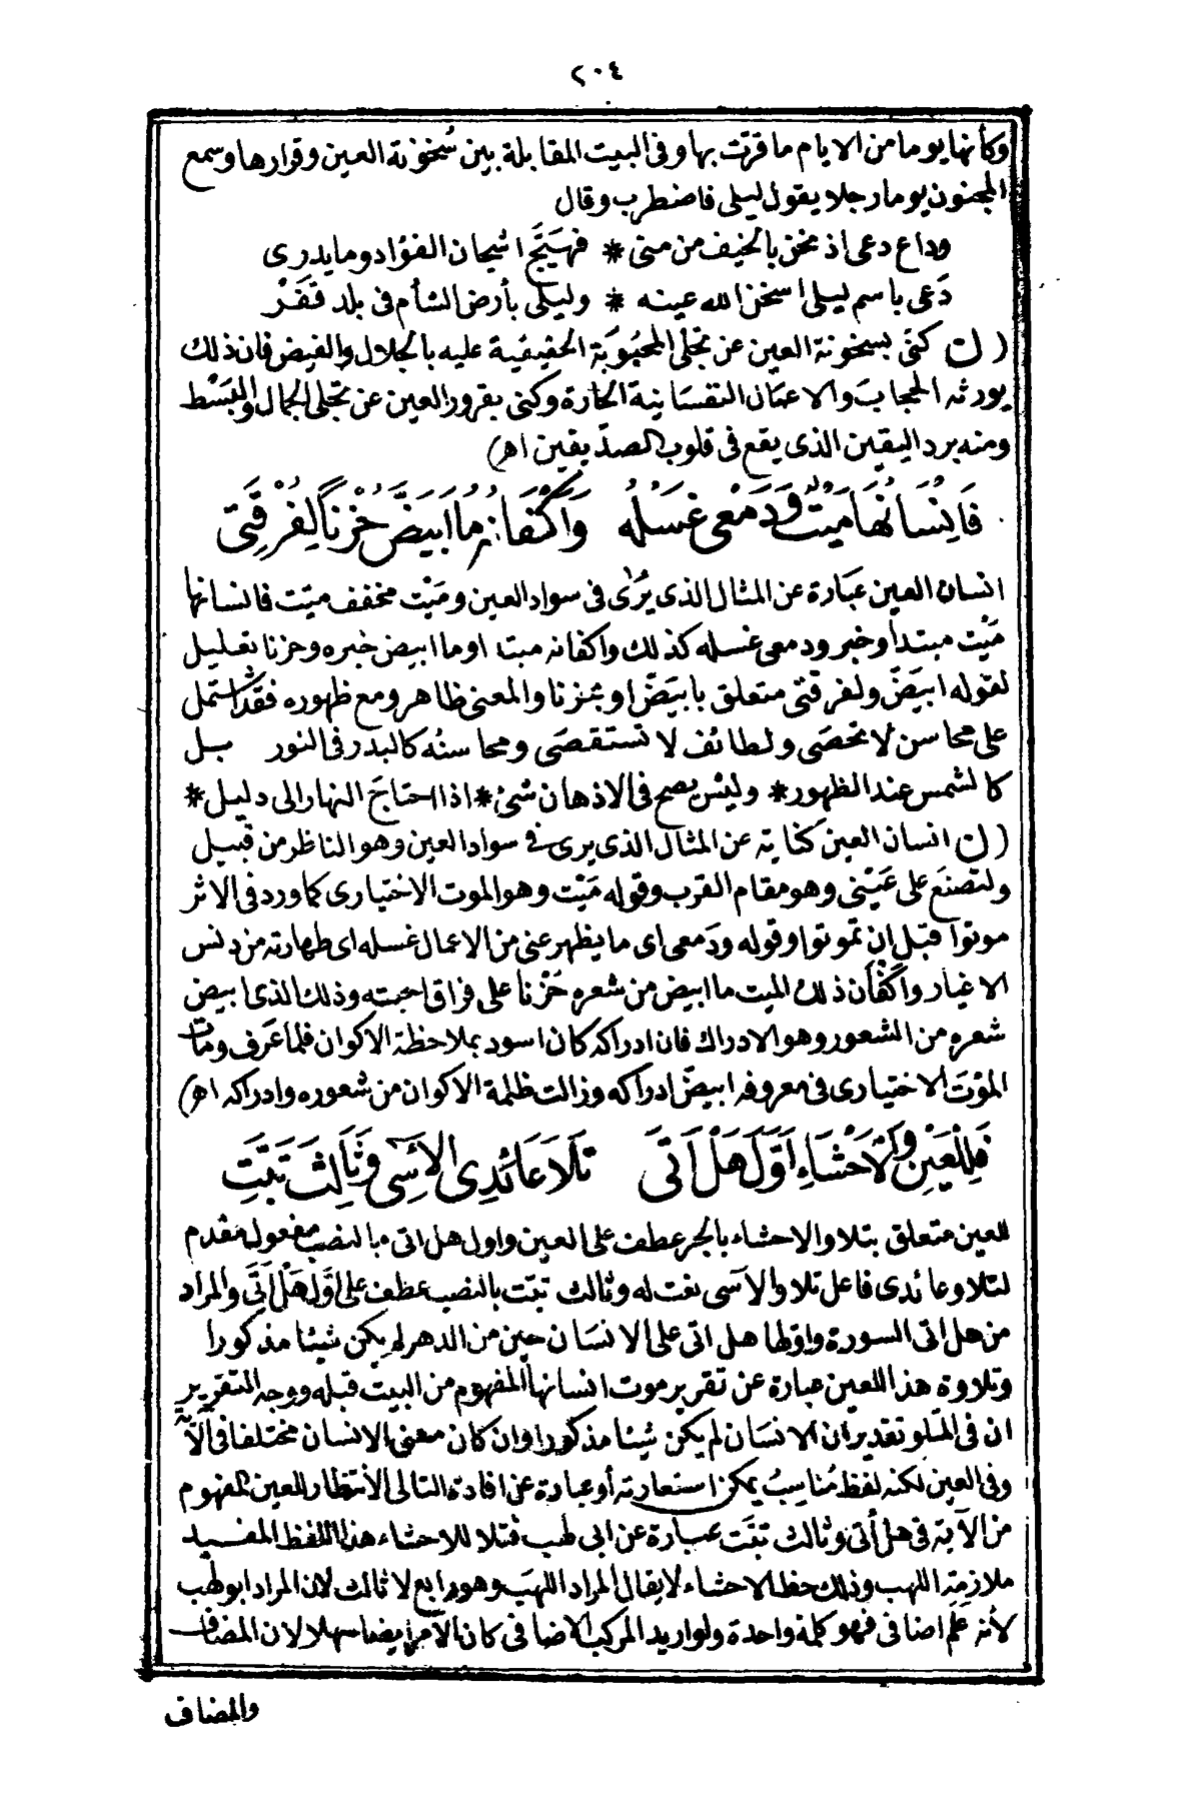 ٢٠٤
وكأنها يوما من الايام ما قرت بها وفى البيت المقابلة بين سُخونة العين وقرارها وسمع
المجنون يوما رجلا يقول ليلى فاضطرب وقال
وداع دعى اذ نحن بالخيف من منى * فهيَّج اشجان الفؤاد وما يدرى
دَعى باسم ليلى اسخن الله عينه * وليلى بأرض الشأم فى بلد قَفْر
(ن كنى بسخونة العين عن تجلى المحبُوبَة الحقيقية عليه بالجلال والقبض فان ذلك
يورثه الحجابَ والاعمَال النفسَانية الحارة وكنى بقرور العين عن تجلى الجمال والبَسْط
ومنه برد اليقين الذى يقع فى قلوب الصدّيقين اهـ)
فَاِنْسَانُهَا مَيْتٌ وَدَمْعِى غَسْلُهُ وَاَكْفَانُهُ مَا ابْيَضَّ حُزْنًا لِفُرْقَتِى
انسان العين عبَارة عن المثال الذى يُرٰى فى سواد العين ومَيْت مخفف ميّت فانسانها
مَيْت مبتدأ وخبر ودمعى غسله كذلك واكفانه مبتدا وما ابيض خبره وحزنا تعليل
لقوله ابيَضّ ولفرقتى متعلق بابيَضّ او بحزنا والمعنى ظاهر ومع ظهوره فقد اشتمل
على محاسن لا تحصَى ولطائف لا تستقصَى ومحاسنُه كالبدر فى النور بل
كالشمس عند الظهور * وليْس يصح فى الاذهان شئ * اذا احتاجَ النهار الى دليل *
(ن انسان العين كناية عن المثال الذى يرى فى سواد العين وهو الناظر من قبيل
ولتصْنعَ على عَيْنى وهو مقام القرب وقوله مَيْت وهو الموت الاختيارى كما ورد فى الاثر
موتوا قبل ان تموتوا وقوله ودَمعى اى ما يظهر عنى من الاعمال غسله اى طهارته من دنس
الاغيار واكْفان ذلك الميت ما ابيض من شعره حُزْنا على فراق احبته وذلك الذى ابيض
شعره من الشعور وهو الادراك فان ادراكه كان اسود بملاحظة الاكوان فلما عَرف ومَات
الموْتَ الاختيارى فى معروفه ابيضّ ادراكه وزالت ظلمة الاكوان من شعوره وادراكه اهـ)
فَلِلْعَيْنِ وَالْاَحْشَاءِ اَوَّلَ هَلْ اَتَى تَلَا عَائِدِى الْآسِى وَثَالِثَ تَبَّتِ
للعين متعلق بتلا والاحشاء بالجر عطف على العين واول هل اتى بالنصب مفعول مقدم
لتلا وعائدى فاعل تلا والآسى نعت له وثالث تبّت بالنصب عطف على اوَّل هَلْ اَتَى والمراد
من هل اتى السورة واوّلها هل اتى على الانسَان حين من الدهر لم يكن شيئا مذكورا
وتلاوة هذا للعين عبارة عن تقرير موت انسانها المفهوم من البيت قبله ووجه التقرير
ان فى المتلو تقدير ان الانسَان لم يكن شيئا مذكورا وان كان معنى الانسان مختلفا فى الآية
وفى العين لكنه لفظ مُناسِبُ يمكن استعارته أو عبارة عن افادة التالى الانتظار للعين المفهوم
من الآية فى هل أتى وثالث تبّت عبارة عن ابى لهب فتلا للاحشاء هذا اللفظ المفيد
ملازمة اللهب وذلك حظ الاحشاء لا يقال المراد اللهَب وهو رابع لا ثالث لان المراد ابو لهب
لأنه علَم اضافى فهو كلمة واحدة ولو اريد المركب الاضافى كان الأمر ايضا سهلا لان المضاف
والمضاف